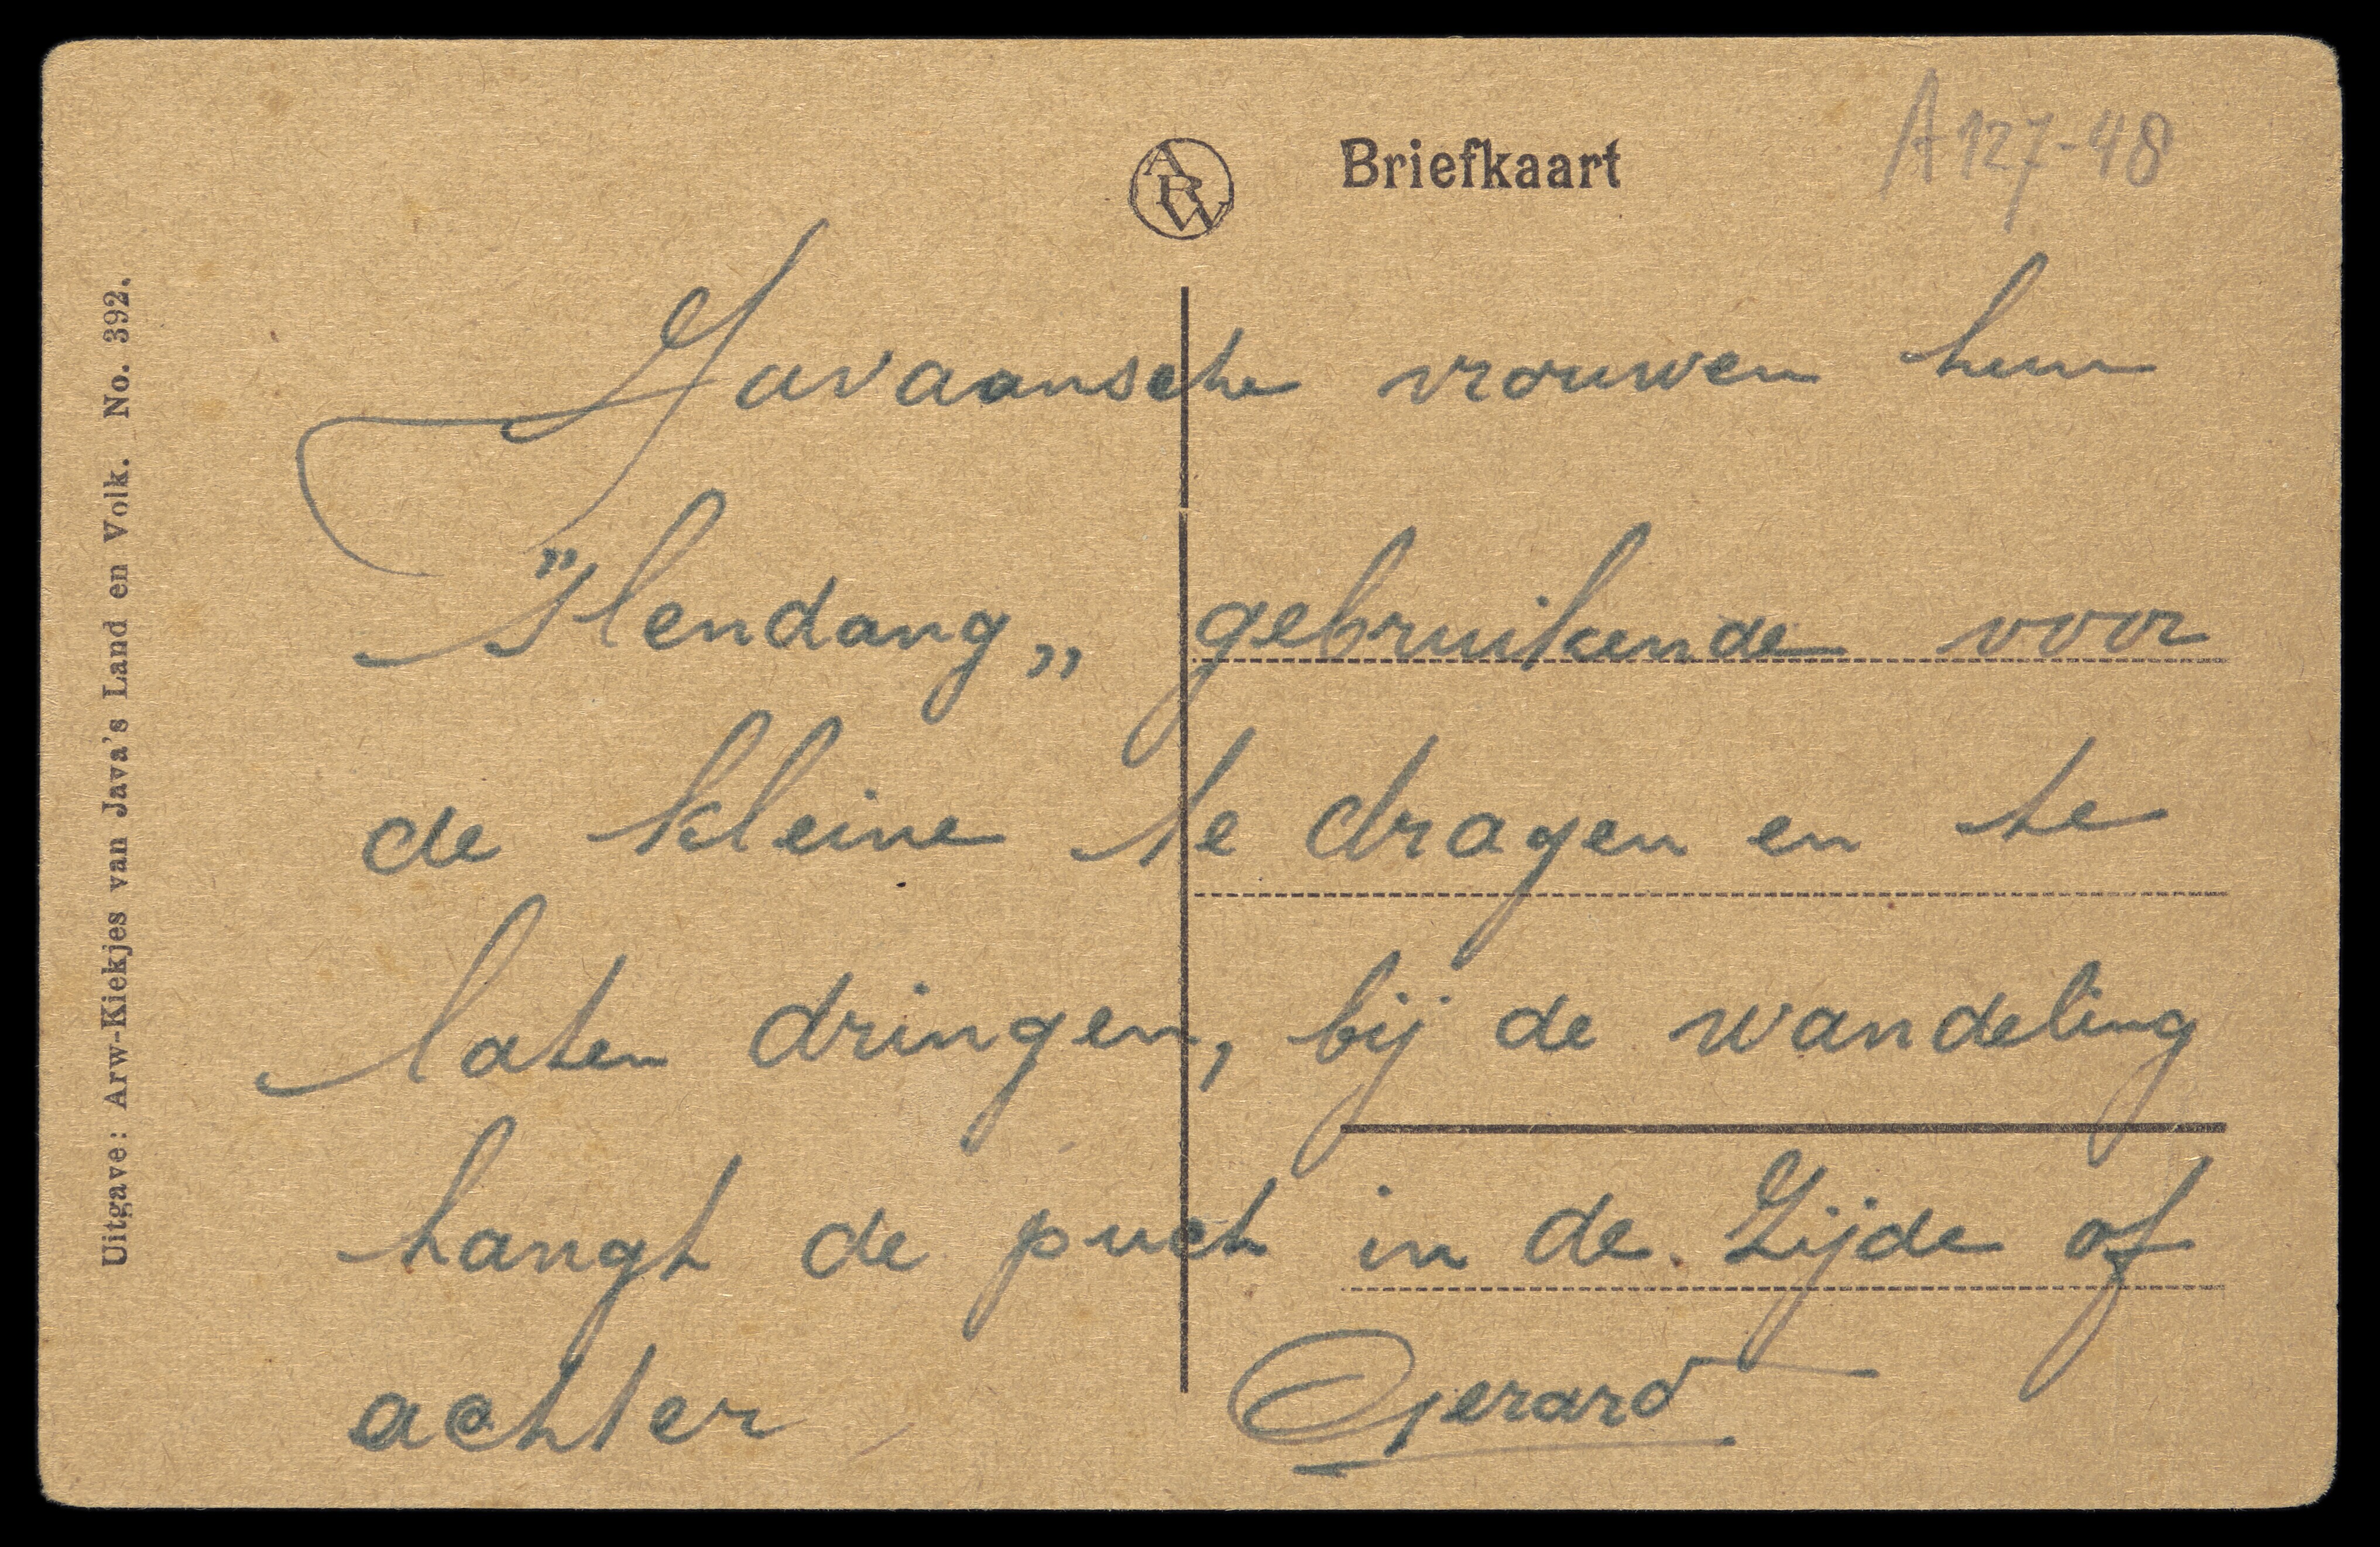 Briefkaart
A127-48
ARW
Javaansche vrouwen hun
"Slendang„ gebruikende voor
de kleine te dragen en te
laten dringen, bij de wandeling
hangt de puch in de Zijde of
achter
Gerard
Uitgave: Arw-Kiekjes van Java's Land en Volk. No. 392.